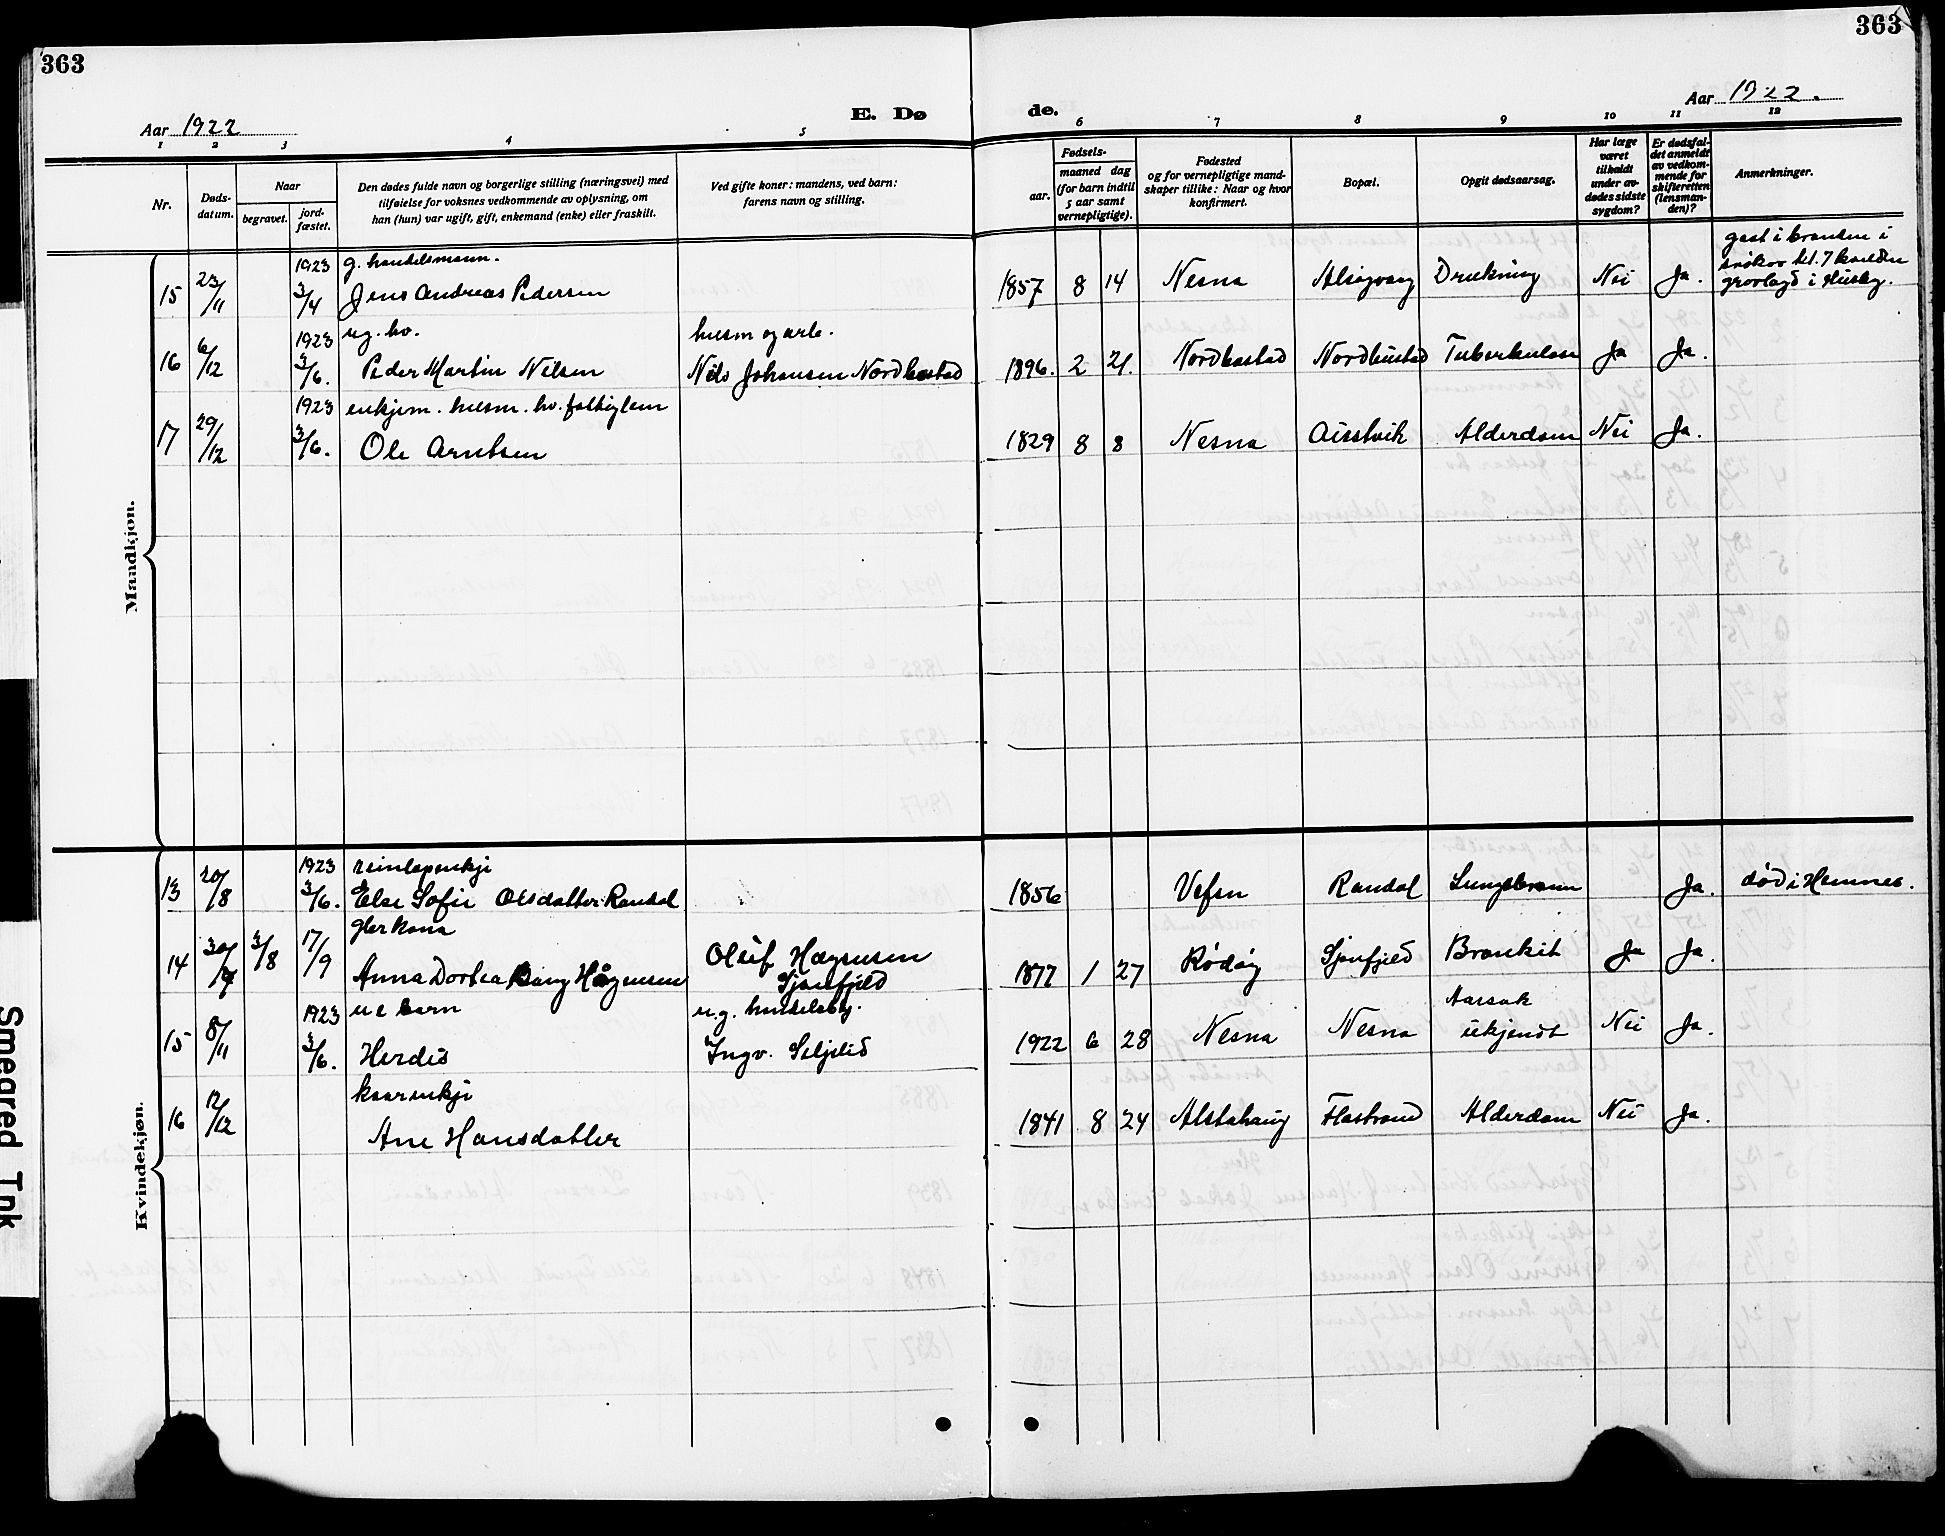 363
363
Aar 1922
E. Dø
de.
Aar 1922.
1 2 3 4 5 6 7 8 9 10 11 12
Nr.
Døds-
datum.
Naar
begravet.
jord-
fæstet.
Den dødes fulde navn og borgerlige stilling (næringsvei) med
tilføielse for voksnes vedkommende av oplysning, om
han (hun) var ugift, gift, enkemand (enke) eller fraskilt.
Ved gifte koner: mandens, ved barn:
farens navn og stilling.
Fødsels-
aar.
maaned dag
(for barn indtil
5 aar samt
vernepligtige).
Fødested
og for vernepligtige mand-
skaper tillike: Naar og hvor
konfirmert.
Bopæl.
Opgit dødsaarsag.
Har læge
været
tilkaldt
under av-
dødes sidste
sygdom?
Er dødsfal-
det anmeldt
av vedkom-
mende for
skifteretten
(lensman-
den)?
Anmerkninger.
Mandkjøn.
1923 g. handelsmann.
15 23/11 3/4 Jens Andreas Pedersen 1857 8 14 Nesna Drukning Nei Ja.
1923 ug. hv. husm og arb.
16 6/12 3/6. Peder Martin Nilsen Nils Johansen 1896. 2 21. Tuberkulose Ja Ja.
1923 enkjem. husm. hv. fattiglem
17 29/12 3/6. Ole Arntsen 1829 8 8 Nesna Alderdom Nei Ja.
Kvindekjøn.
1923
13 20/8 3/6. Else Sofie Olsdatter Randal 1856 Vefsn Randal Ja. død i Hemnes.
14 3/8 17/9 Anna Dortea Bang Håg­ensen 1877 1 27 Rødøy Sjonfjeld Bronkit Ja Ja.
Sjonfjeld
1923 u e barn Aarsak
15 8/11 3/6. Herdis Ingv. 1922 6 28 Nesna Nesna ukjendt Nei Ja.
16 12/12 Ane Hansdatter 1841 8 24 Alstahaug Alderdom Nei Ja.
Smegred Ink